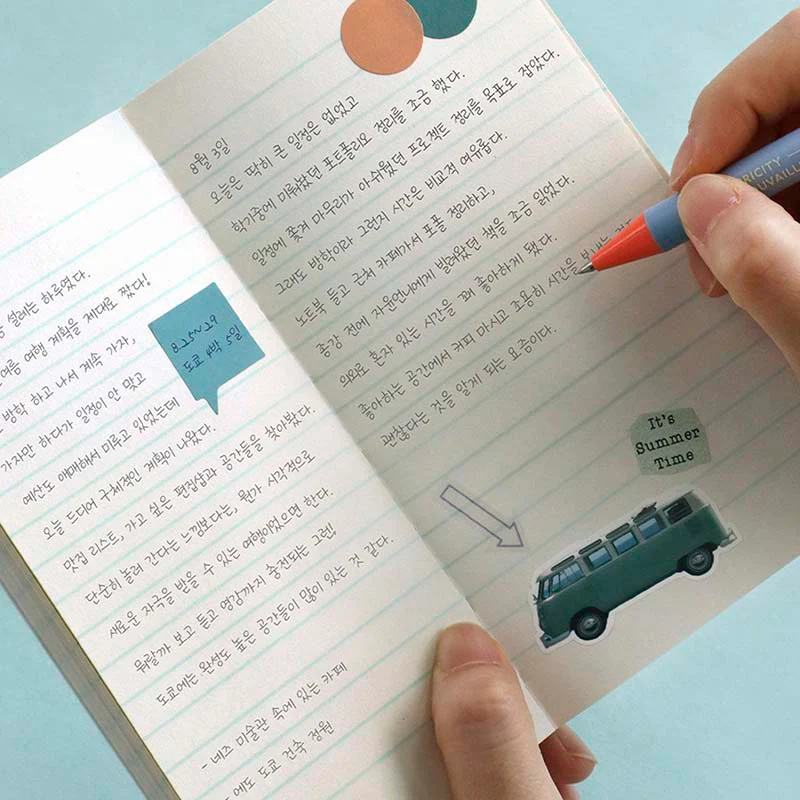 설레는 하루였다.
여름 여행 계획을 제대로 짰다!
방학 하고 나서 계속 가자,
가자만 하다가 일정이 안 맞고
예산도 애매해서 미루고 있었는데
오늘 드디어 구체적인 계획이 나왔다.
맛집 리스트, 가고 싶은 편집샵과 공간들을 찾아봤다.
단순히 놀러 간다는 느낌보다는, 뭔가 시각적으로
새로운 자극을 받을 수 있는 여행이었으면 한다.
뭐랄까 보고 듣고 영감까지 충전되는 그런!
도쿄에는 완성도 높은 공간들이 많이 있는 것 같다.
- 네즈 미술관 속에 있는 카페
- 에도 도쿄 건축 정원
8.25~29
도쿄 4박 5일
8월 3일
오늘은 딱히 큰 일정은 없었고
학기중에 미뤄놨던 포트폴리오 정리를 조금 했다.
일정에 쫓겨 마무리가 아쉬웠던 프로젝트 정리를 목표로 잡았다.
그래도 방학이라 그런지 시간은 비교적 여유롭다.
노트북 들고 근처 카페가서 포폴 정리하고,
종강 전에 자윤언니에게 빌려왔던 책을 조금 읽었다.
의외로 혼자 있는 시간을 꽤 좋아하게 됐다.
좋아하는 공간에서 커피 마시고 조용히 시간을 보내는
괜찮다는 것을 알게 되는 요즘이다.
It's
Summer
Time
RICITY
UVAILL